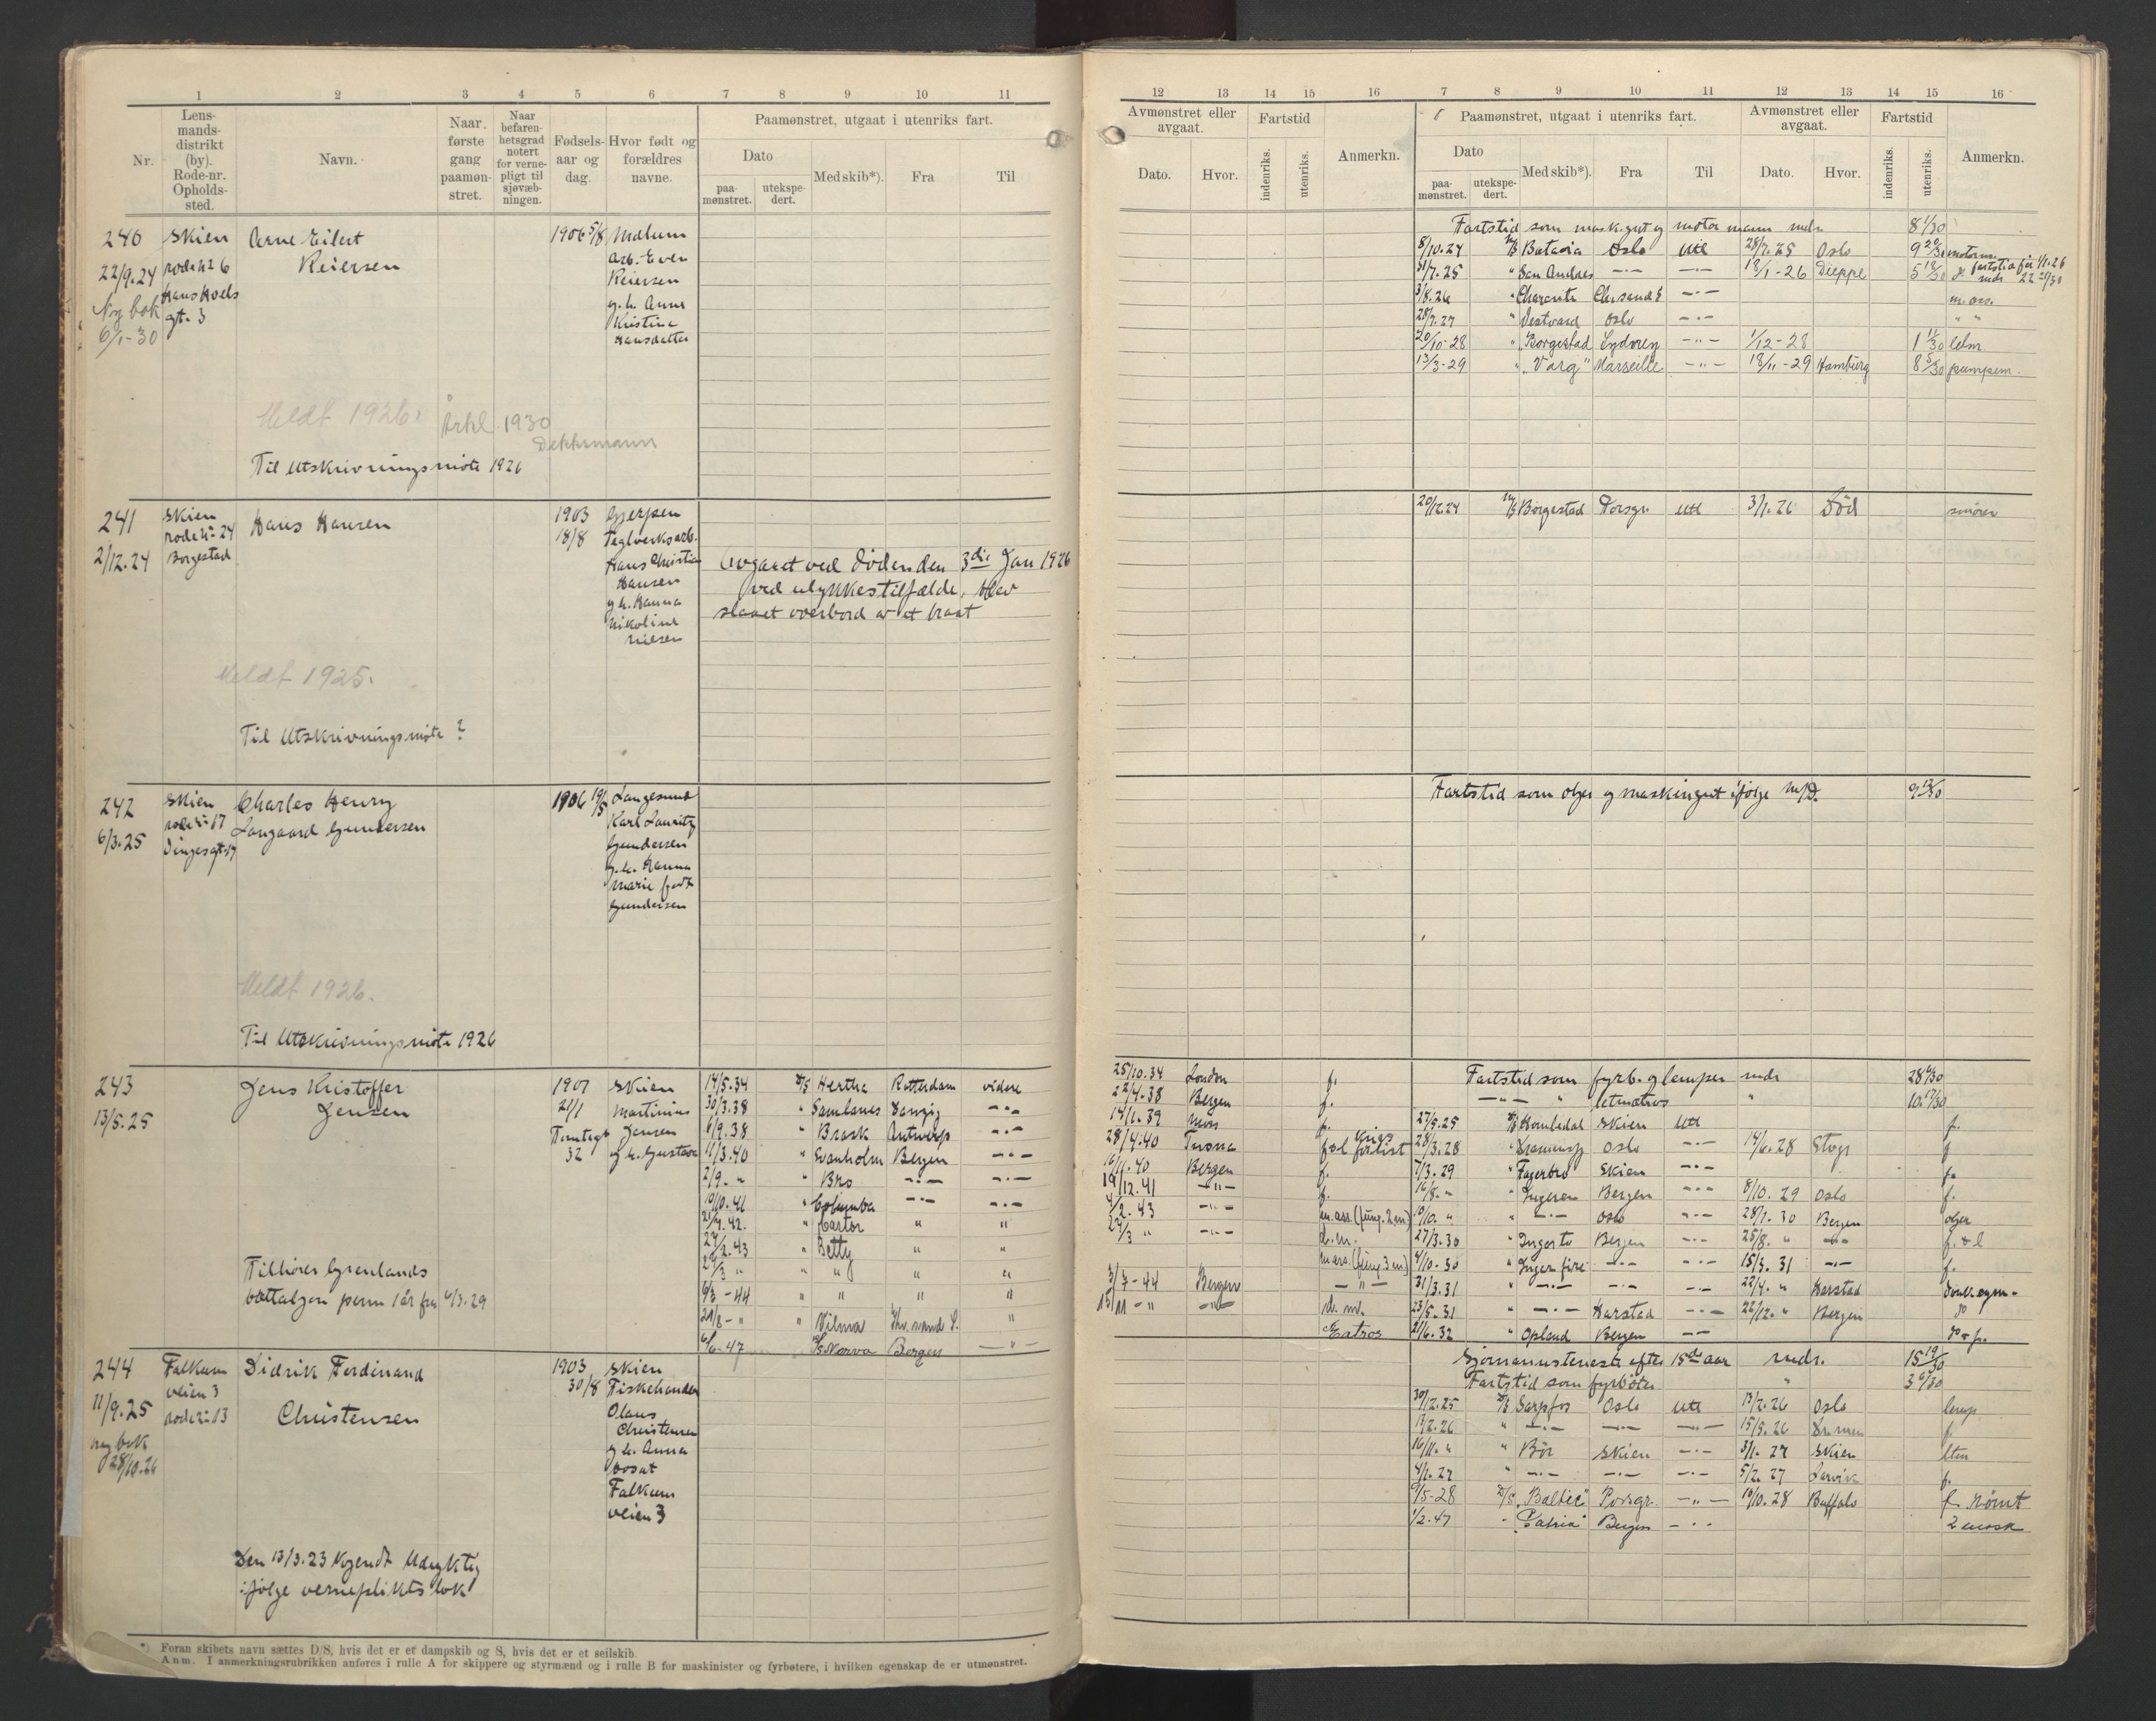 1 2 3 4 5 6 7 8 9 10 11
Nr.
Lens-
mands-
distrikt
(by).
Rode-nr.
Opholds-
sted.
Navn.
Naar
første
gang
paamøn-
stret.
Naar
befaren-
hetsgrad
notert
for verne-
pligt til
sjøvæb-
ningen.
Fødsels-
aar og
dag.
Hvor født og
forældres
navne.
Paamønstret, utgaat i utenriks fart.
Dato
paa-
mønstret.
utekspe-
dert.
Med skib*).
Fra
Til
240
22/9.24
Ny bok
6/1-30
Skien
rode no 6
Hans Hoels
gt. 3
Arne Eilert
Reiersen
1906 5/8
Melum
Arb. Even
Reiersen
g.h. Anne
Kristine
Hansdatter
Meldt 1926.
Årkl. 1930
Dekksmann
Til Utskrivningsmøte 1926
241
2/12.24
Skien
rode no 24
Borgestad
Hans Hansen
1903
18/8
Gjerpen
Teglverksarb.
Hans Christian
Hansen
g.h. Hanna
Nikoline
Nielsen
Avgaaet ved døden den 3die Jan 1926
ved ulykkestilfælde, blev
slaaet overbord av et braat
Meldt 1925.
Til Utskrivningsmøte ?
242
6/3.25
Skien
rode no 17
Charles Henry
Langaard Gundersen
1906 19/5
Langesund
Karl Lauritz
Gundersen
g.h. Hanna
Marie født
Gundersen
Meldt 1926.
Til Utskrivningsmøte 1926
243
13/5.25
Jens Kristoffer
Jensen
1907
21/1
Tomtegt
32
Skien
Martinius
Jensen
g.h. Gustava
14/5.34 D/S Hertha Rotterdam videre
30/3.38 " Samlanes Danzig -"-
6/9.38 " Brask Antwerp -"-
11/3.40 " Svanholm Bergen -"-
2/9. " " Bro -"- -"-
10/10.41 " Columba -"- -"-
21/9.42. " Castor " "
27/2.43 " Betty " "
27/3 " " " " "
6/3-44 " " " "
29/8-" " Vilma Khr.sand S. "
6/6-47 D/S Norva Bergen -"-
Tilhører Grenlands
battaljon perm 1 år fra 6/3.29
244
11/9.25
ny bok
28/10.26
Falkum
veien 3
rode no 13
Didrik Ferdinand
Christensen
1903
30/8
Skien
Fiskehandler
Olaus
Christensen
g.h. Anna
bosat
Falkum
veien 3
Den 13/3.23 kjendt Udyktig
ifølge vernepliktsbok
*) Foran skibets navn sættes D/S, hvis det er et dampskib og S, hvis det er et seilskib.
Anm. I anmerkningsrubrikken anføres i rulle A for skippere og styrmænd og i rulle B for maskinister og fyrbøtere, i hvilken egenskap de er utmønstret.
12 13 14 15 16 7 8 9 10 11 12 13 14 15 16
Avmønstret eller
avgaat.
Dato.
Hvor.
Fartstid
indenriks.
utenriks.
Anmerkn.
Paamønstret, utgaat i utenriks fart.
Dato
paa-
mønstret.
utekspe-
dert.
Med skib*).
Fra
Til
Avmønstret eller
avgaat.
Dato.
Hvor.
Fartstid
indenriks.
utenriks.
Anmerkn.
Fartstid som mask.gut og motormann mdr. 8 1/30
8/10.24 M/S Batavia Oslo Utl 28/7.25 Oslo 9 20/30 motorm.
31/7.25 " San Andres -"- -"- 18/1-26 Dieppe 5 18/30 fartstid før 1/1.26
mdr 22 28/30
3/8.26 " Charente Chrsand S -"- m.ass.
28/7.27 " Vestvard Oslo -"- " "
20/10-28 " "Borgestad Sydney -"- 1/12-28 1 11/30 lelm
13/3-29 " "Varg" Marseille -"- 18/11-29 Hamburg 8 5/30 pumpem.
20/12.24 M/S Borgestad Porsgr. Utl 3/1.26 Død smører
Fartstid som oljer og maskingut ifølge M/D. 9 12/30
25/10.34 London f.
22/4.38 Bergen f.
14/1.39 Mois
28/4.40 Tuona f&l krigsforlist
16/11.40 Bergen f.
19/12.41 -"- f.
4/2.43 -"- m.ass. (fung. 2 m)
27/3 -"- d.m.
m.ass. (fung. 3 m)
3/7-44 Bergen -"-
15/11-" -"- d.m.
Fartstid som fyrb. og lemper mdr 28 6/30
-"- " letmatros " 10 17/30
27/5.25 D/S Hornledal Skien Utl f.
28/3.28 " Oslo -"- 14/6.28 f
7/3.29 " Fagerbro Skien -"- f.
16/8." " Ingeren Bergen -"- 8/10.29 Oslo f.
10/10." " -"- Oslo -"- 28/1.30 Bergen oljer
27/3.30 " Ingerto Bergen -"- 25/8." -"- f.&l
4/10-30 " Ingerfire -"- -"- 15/3.31 -"- f.
31/3.31 " -"- -"- -"- 22/4." Harstad donk.eym.
23/5.31 " -"- Harstad -"- 22/12." Bergen do
21/6.32 " Opland Bergen -"- do & f.
Sjømannstjeneste efter 15de aar mdr. 15 19/30
Fartstid som fyrbøter " 3 6/30
30/12.25 D/S Sarpfos Oslo Utl 13/2.26 Oslo lemp
13/2.26 " -"- -"- -"- 15/5.26 Drammen f.
16/11." " Bør Skien -"- 3/1.27 Skien ltm
4/1.27 " -"- -"- -"- 5/2.27 Larvik f.
9/5-28 D/S "Baltic" Porsgr. -"- 10/10.28 Buffalo f. rømt
1/2.47 " "Patria" Bergen -"- 2 mask